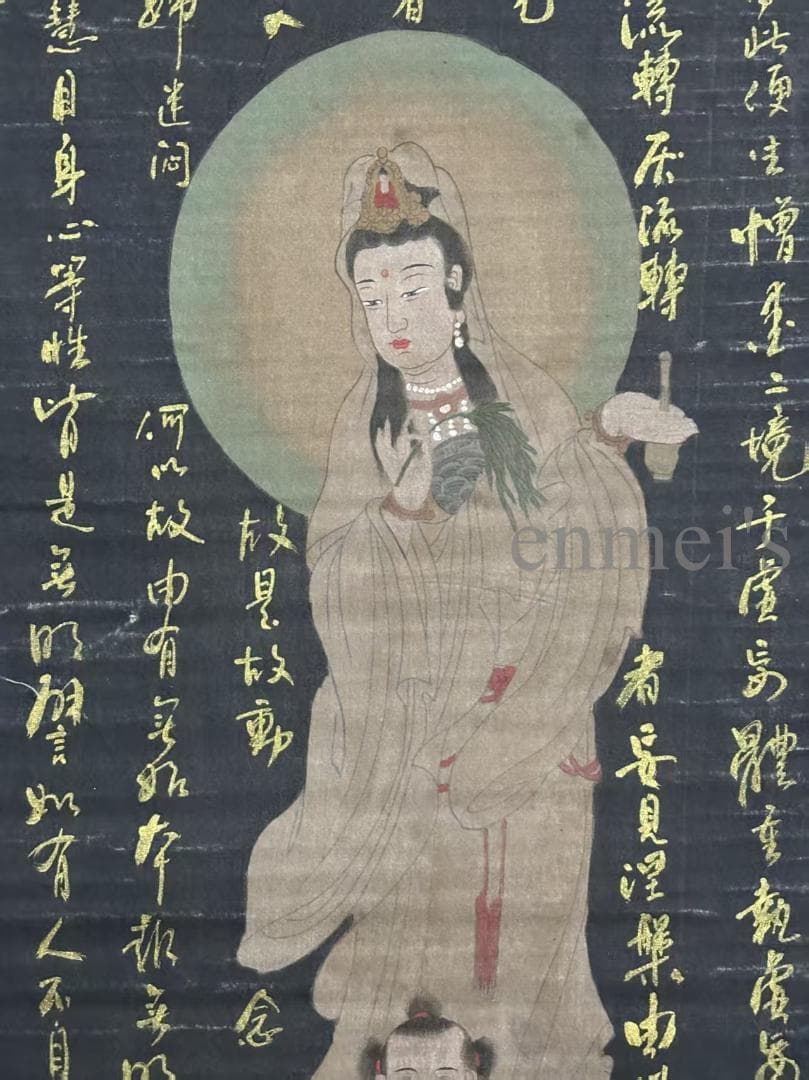 此便生憎愛二境于虛妄體重執虛妄
流轉厭流轉者妄見涅槃由
者
故是故動念
歸迷悶何以故由有無始本起無明
慧目身心等性皆是無明譬如有人不自
enmei's